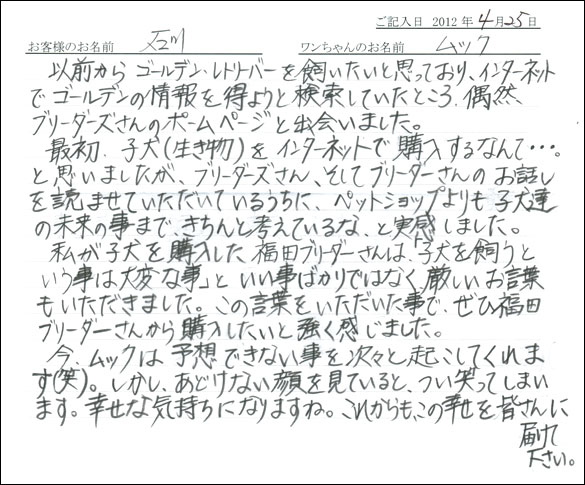 ご記入日 2012年4月25日
お客様のお名前 石川 ワンちゃんのお名前 ムック
以前からゴールデン・レトリーバーを飼いたいと思っており、インターネット
でゴールデンの情報を得ようと検索していたところ、偶然、
ブリーダーズさんのホームページと出会いました。
最初、子犬(生き物)をインターネットで購入するなんて・・・。
と思いましたが、ブリーダーズさん、そしてブリーダーさんのお話し
を読ませていただいているうちに、ペットショップよりも子犬達
の未来の事まで、きちんと考えているな、と実感しました。
私が子犬を購入した福田ブリーダーさんは、「子犬を飼うと
いう事は大変な事」といい事ばかりではなく、厳しいお言葉
もいただきました。この言葉をいただいた事で、ぜひ福田
ブリーダーさんから購入したいと強く感じました。
今、ムックは予想できない事を次々と起こしてくれま
す(笑)。しかし、あどけない顔を見ていると、つい笑ってしまい
ます。幸せな気持ちになりますね。これからも、この幸せを皆さんに
届けて
下さい。